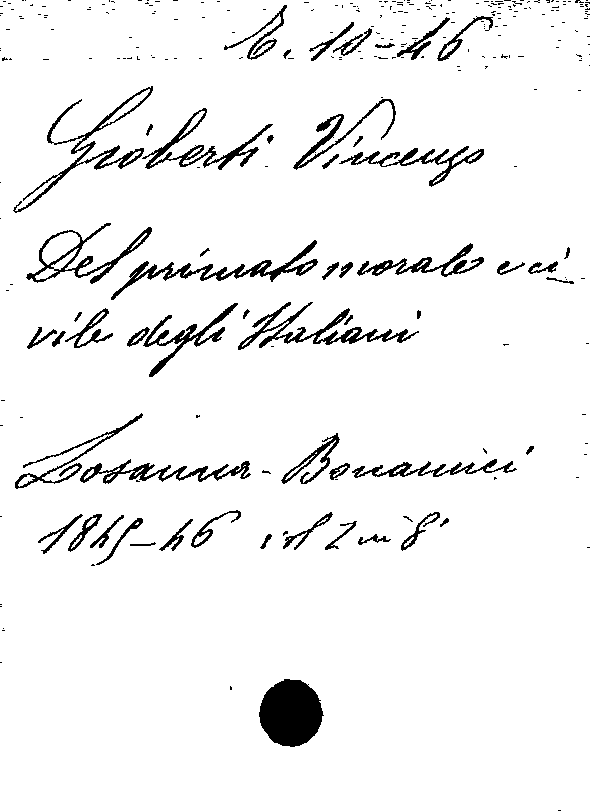 E. 10-46
Gioberti Vincenzo
Del primato morale e ci-
vile degli Italiani
Losanna - Bonamici
1845-46 vol 2 in 8°